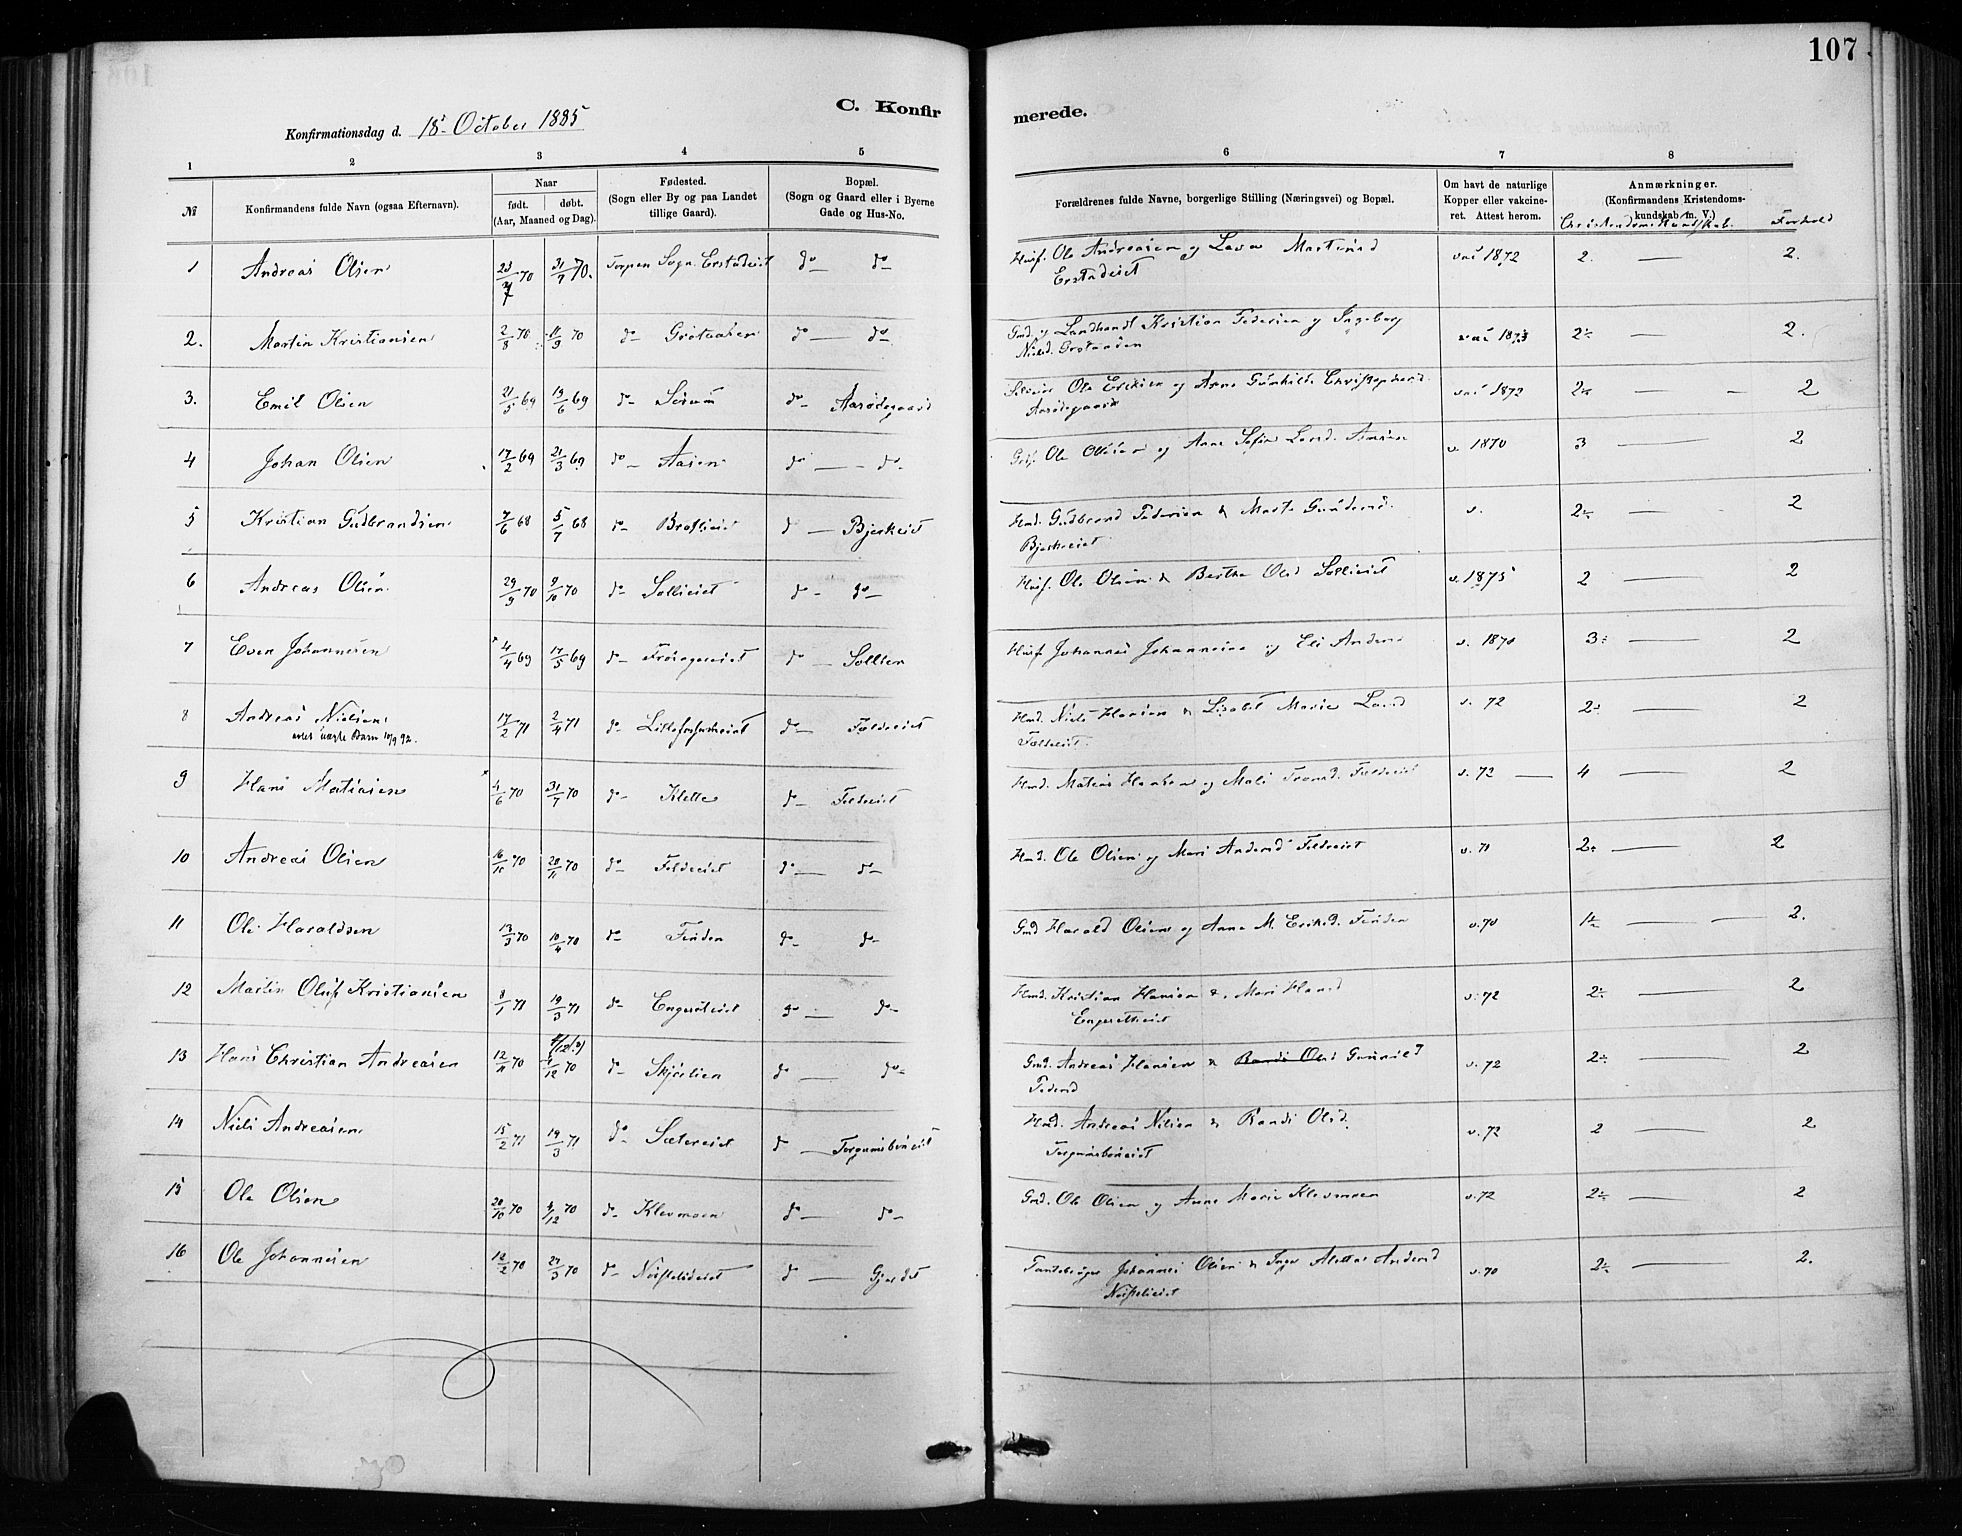 107
Konfirmationsdag d. 18de October 1885
C. Konfirmerede.
1 2 3 4 5 6 7 8
№
Konfirmandens fulde Navn (ogsaa Efternavn).
Naar
født. døbt.
(Aar, Maaned og Dag).
Fødested.
(Sogn eller By og paa Landet
tillige Gaard).
Bopæl.
(Sogn og Gaard eller i Byerne
Gade og Hus-No.
Forældrenes fulde Navne, borgerlige Stilling (Næringsvei) og Bopæl.
Om havt de naturlige
Kopper eller vakcine-
ret. Attest herom.
Anmærkninger.
(Konfirmandens Kristendoms-
kundskab m. V.)
Christendomskundskab. Forhold
1 Andreas Olsen 23/7 70 31/7 70. Torpen Sogn. Erstadeiet do do Husf. Ole Andreasen og Lava Martinsd
Erstadeiet vac 1872 2. 2.
2. Martin Kristiansen 2/8 70 11/9 70 do Grøtaasen do do Gmd. og Landhandl Kristian Pedersen og Ingeborg
Nielsd. vac 1873 2 2.
3. Emil Olsen 21/5 69 13/6 69 do do Aarødegaard Ole Eriksen og Anne Gunhilde
Aarødegaard vac 1872 2 2
4 Johan Olsen 17/2 69 21/3 69 do Aasen do do Ole Olsen og Anne Sofie v. 1870 3 2
5 Kristian Gudbrandsen 7/6 68 5/7 68 do do Bjerkeiet Hmd. Gudbrand Pedersen & Marte
Bjerkeeiet v. 2 2
6 Andreas Olsen 29/9 70 9/10 70 do Sollieiet do do Husf. Ole Olsen & Berthe Olsd Sollieiet v. 1875 2 2
7 Even Johannesen 4/4 69 17/5 69 do do Sollien Husf Johannes Johannesen og Eli Andersd v. 1870 3 2
8 Andreas Nielsen 17/2 71 2/4 71 do do Foldeeiet Hmd. Niels Hansen & Lisabet Marie
Foldeeiet. v. 72 2 2
9 Hans Matiasen 4/6 70 31/7 70 do Klette do Foldeeiet Hmd. Matias Hansen og Mali Foldeeiet v. 72 4 2
10 Andreas Olsen 16/10 70 20/11 70 do Foldeeiet do do Hmd. Ole Olsen og Mari Andersd Foldeeiet v. 71 2 2
11 Ole Haraldsen 13/3 70 10/4 70 do Finden do do Gmd Harald Olsen og Anne M. Eriksd. Finden v. 70 1 2.
12 Martin Oluf Kristiansen 8/1 71 19/3 71 do do do Hmd. Kristian Hansen & Mari Hansd v. 72 2 2
13 Hans Christian Andreasen 12/11 70 4/12 70 do Skjælien do do Gmd. Andreas Hansen & Randi Olsd Gunild
Pedersd v. 72 2 2
14 Niels Andreasen 15/2 71 19/3 71 do Sætereiet do Hmd. Andreas Nilsen & Randi Olsd. v. 72 2 2
15 Ole Olsen 20/10 70 4/12 70 do Klevmoen do do Gmd. Ole Olsen og Anne Marie Klevmoen v. 72 2 2
16 Ole Johannesen 12/2 70 27/3 70 do do Gjerdet Johannes Olsen & Inger Andersd v. 70 2 2.